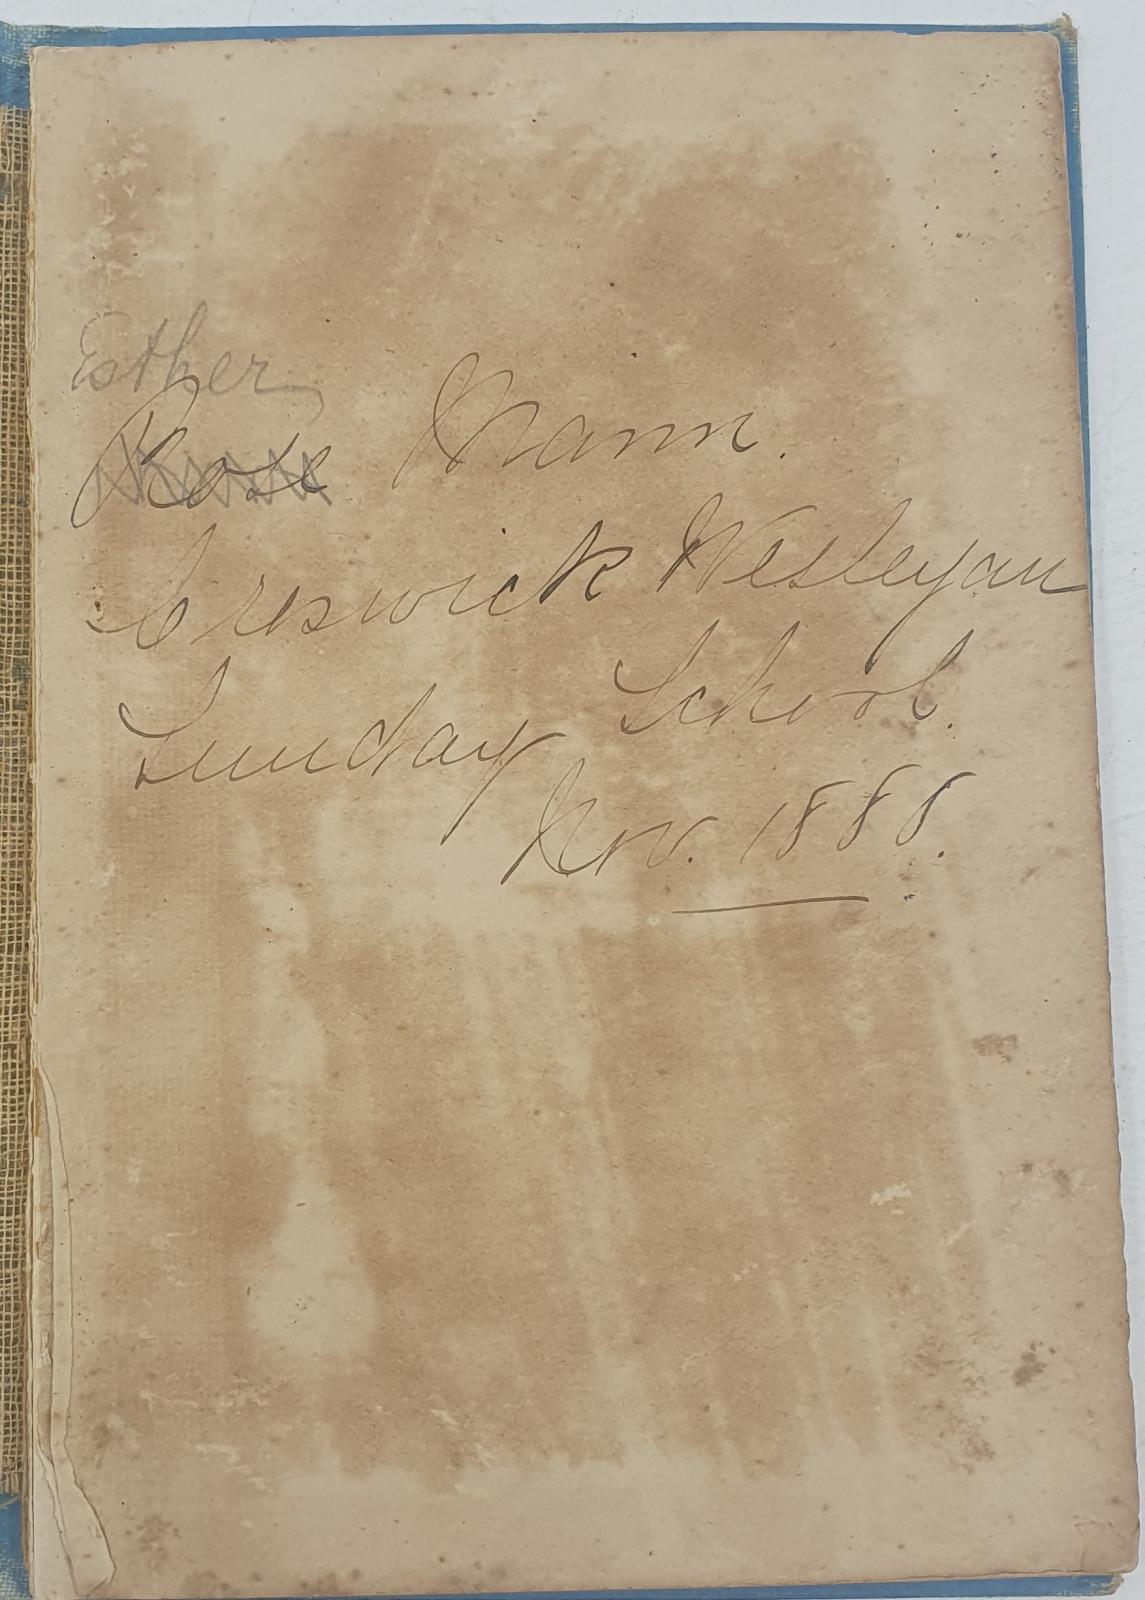 Esther
Rose Mann.
Creswick Wesleyan
Sunday School.
Nov. 1888.